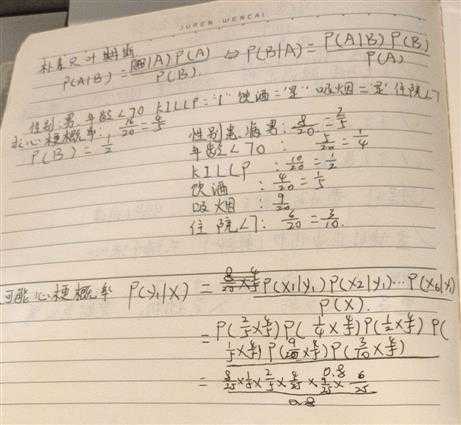 JUREN WENCAI
朴素贝叶斯
P(A|B) = P(B|A) P(A) / P(B) ⇔ P(B|A) = P(A|B) P(B) / P(A)
性别:男 年龄<70 KILLP:"1" 饮酒="是" 吸烟="是" 住院<7
求心梗概率: 16/20 = 4/5
P(B) = 1/2
性别 男: 8/20 = 2/5
年龄<70 : 5/20 = 1/4
KILLP : 10/20 = 1/2
饮酒 : 4/20 = 1/5
吸烟 : 9/20
住院<7: 6/20 = 3/10.
可能心梗概率 P(y₁|X) = P(x₁|y₁) P(x₂|y₁)… P(x₆|y₁) / P(X).
= P(2/5×4/5) P(1/4×4/5) P(1/2×4/5) P(
1/5×4/5) P(9/20×4/5) P(3/10×4/5)
= 8/25 × 1/5 × 2/5 × 4/25 × 9/25 × 6/25
0.8
0.8